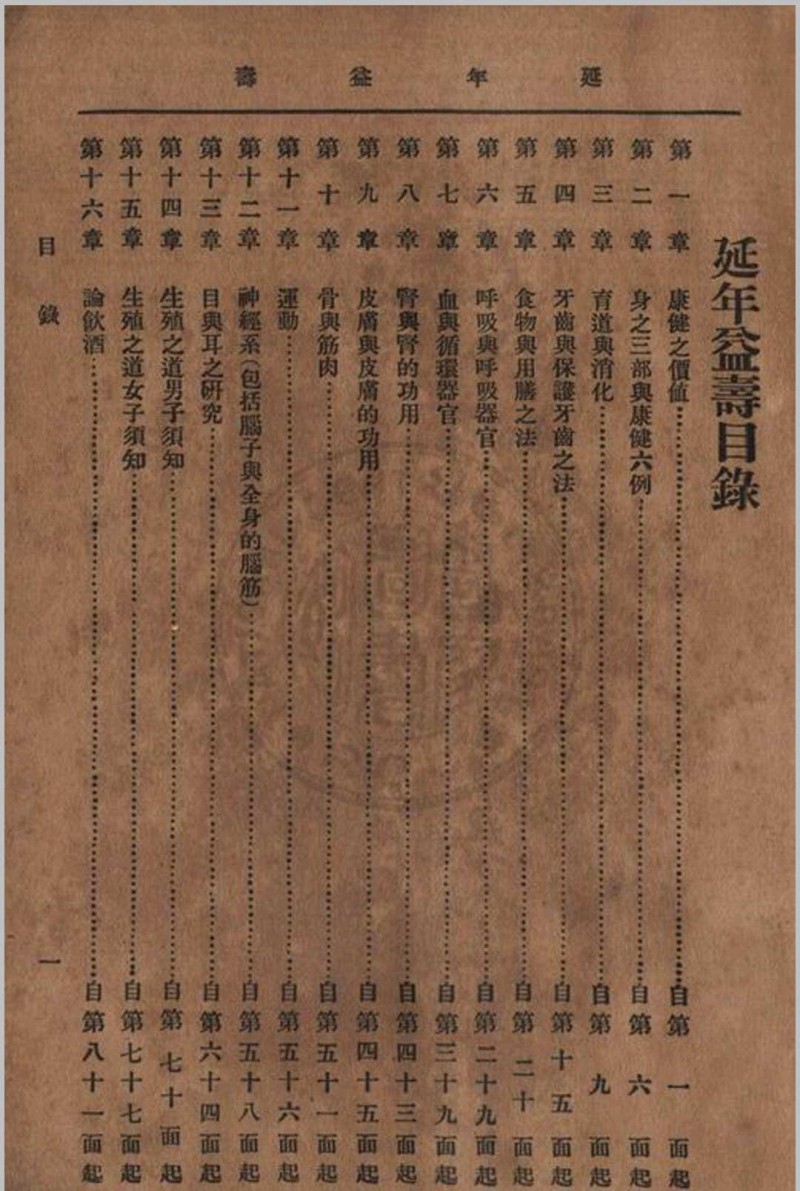 延年益壽
延年益壽目錄
第一章 康健之價値…自第一面起
第二章 身之三部與康健六例…自第六面起
第三章 育道與消化…自第九面起
第四章 牙齒與保護牙齒之法…自第十五面起
第五章 食物與用膳之法…自第二十面起
第六章 呼吸與呼吸器官…自第二十九面起
第七章 血與循環器官…自第三十九面起
第八章 腎與腎的功用…自第四十三面起
第九章 皮膚與皮膚的功用…自第四十五面起
第十章 骨與筋肉…自第五十一面起
第十一章 運動…自第五十六面起
第十二章 神經系(包括腦子與全身的腦筋)…自第五十八面起
第十三章 目與耳之硏究…自第六十四面起
第十四章 生殖之道男子須知…自第七十面起
第十五章 生殖之道女子須知…自第七十七面起
第十六章 論飮酒…自第八十一面起
目錄 一